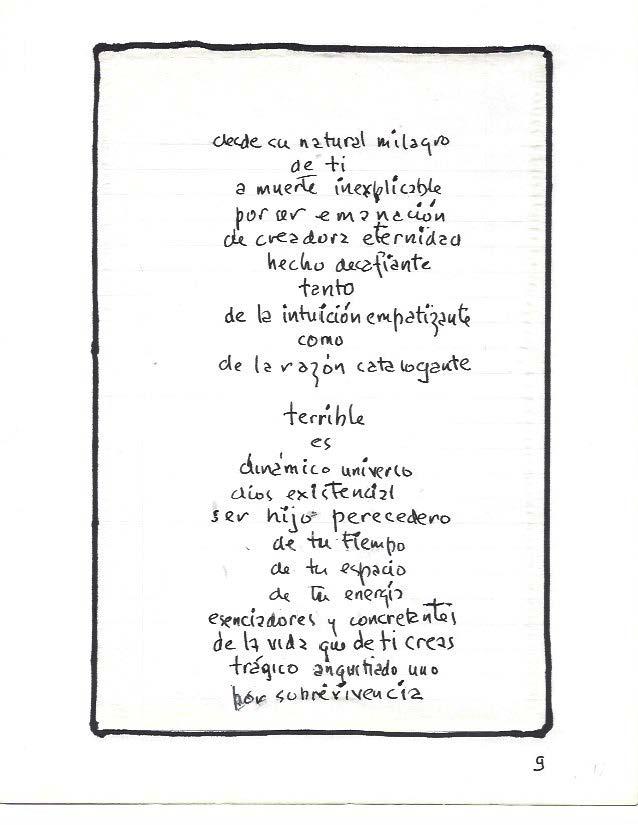 desde su natural milagro
de ti
a muerte inexplicable
por ser emanación
de creadora eternidad
hecho desafiante
tanto
de la intuición empatizante
como
de la razón catalogante
terrible
es
dinámico universo
dios existencial
ser hijo perecedero
de tu tiempo
de tu espacio
de tu energía
esenciadores y concretantes
de la vida que de ti creas
trágico angustiado uno
por sobrevivencia
9